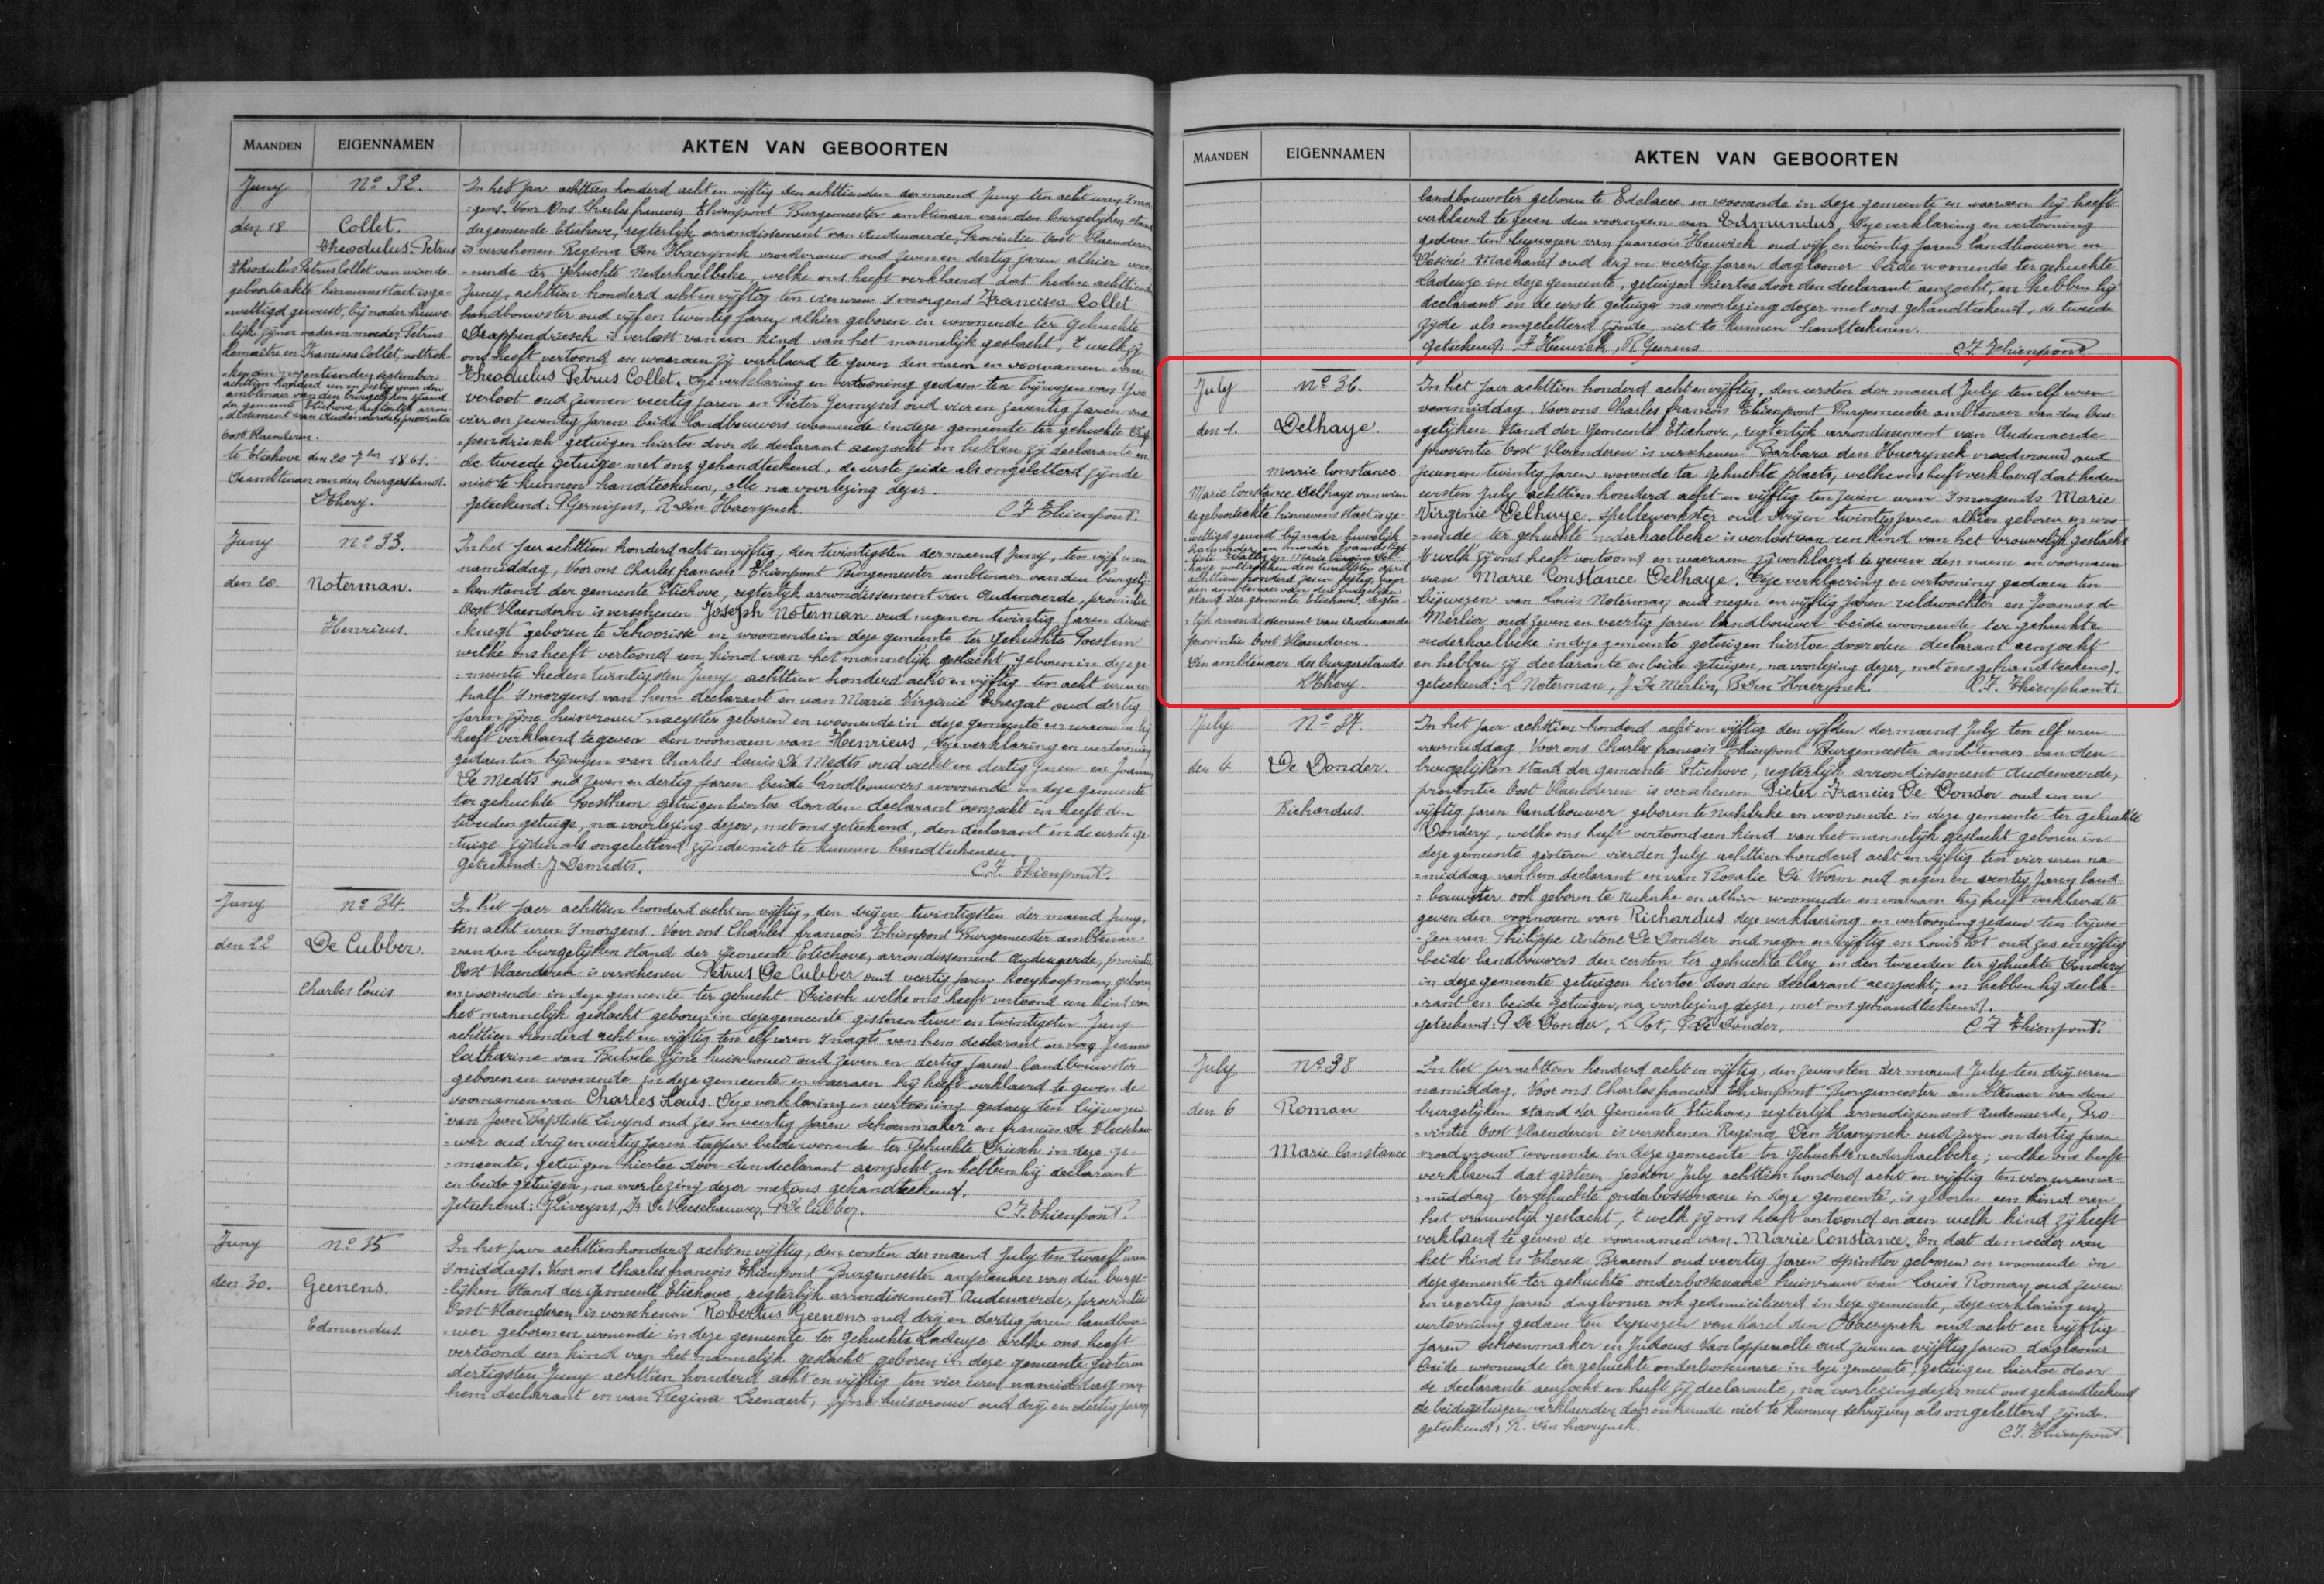 MAANDEN EIGENNAMEN AKTEN VAN GEBOORTEN
Juny
den 18
No 32.
Collet.
Theodulus Petrus
Theodulus Petrus Collet van wiende
geboorteakte hiernevens staet is ge-
-wettigd geweest, bij nader huwe-
-lijk zijner vader en moeder, Petrus
Lemaitre en Francisca Collet, voltrok-
-ken den negentienden september
achttien honderd een en zestig voor den
ambtenaer van den burgelijken stand
der gemeente Etichove, regterlijk arron-
-dissement van Audenaerde, provintie
Oost Vlaenderen.
te Etichove den 20 7ber 1861.
De ambtenaer van den burgerstand.
LThery.
In het jaer achttien honderd acht en vijftig den achttienden der maend Juny ten acht uren smor
-gens. Voor Ons Charles francois Thienpont Burgemeester ambtenaer van den burgelijken stand
der gemeente Etichove, regterlijk arrondissement van Audenaerde, Provintie Oost Vlaenderen
is verschenen Regina Den Haerynck vroedvrouw oud zeven en dertig jaren alhier woo
-nende ter gehuchte Nederhaelbeke, welke ons heeft verklaerd dat heden achttienden
Juny, achttien honderd acht en vijftig ten vier uren smorgens Francisca Collet
landbouwster oud vijf en twintig jaren alhier geboren en woonende ter gehuchte
Drappendriesch is verlost van een kind van het mannelijk geslacht, 't welk zij
ons heeft vertoond en waeraen zij verklaerd te geven den naem en voornamen van
Theodulus Petrus Collet. Deze verklaring en vertooning gedaen ten bijwezen van Yvo
verloot oud zeven en veertig jaren en Pieter Germyns oud vier en zeventig jaren oud
vier en zeventig jaren beide landbouwers woonende in deze gemeente ter gehuchte Drap
-pendriesch getuigen hiertoe door de declarant aenzocht en hebben zij declarante en
de tweede getuige met ons gehandteekend, de eerste zeide als ongeletterd zijnde
niet te kunnen handteekenen, alle na voorlezing dezer.
geteekend: P Germyns, R Den Haerynck. C F Thienpont.
Juny
den 20.
No 33.
Noterman.
Henricus.
In het jaer achttien honderd acht en vijftig, den twintigsten der maend Juny, ten vijf uren
namiddag, Voor ons Charles francois Thienpont Burgemeester ambtenaer van den burgelij-
-ken stand der gemeente Etichove, regterlijk arrondissement van Audenaerde, provintie
Oost Vlaenderen is verschenen Joseph Noterman oud negen en twintig jaren dienst
-knegt geboren te Schoorisse en woonende in deze gemeente ter gehuchte Poestem
welke ons heeft vertoond een kind van het mannelijk geslacht, geboren in deze ge-
-meente heden twintigsten Juny achttien honderd acht en vijftig ten acht uren en
half smorgens van hem declarant en van Marie Virginie oud dertig
jaren zijne huisvrouw naeyster geboren en woonende in deze gemeente en waeraen hij
heeft verklaerd te geven den voornaem van Henricus, deze verklaring en vertooning
gedaen ten bijwezen van Charles Louis De Medts oud acht en dertig jaren en Joannes
De Medts oud zeven en dertig jaren beide landbouwers woonende in deze gemeente
ter gehuchte Poesthem getuigen hiertoe door den declarant aenzocht en heeft den
tweeden getuige, na voorlezing dezer, met ons geteekend, den declarant en de eerste ge-
-tuige zeiden als ongeletterd zijnde niet te kunnen handteekenen.
geteekend: J Demedts. C.F. Thienpont.
Juny
den 22
No 34.
De Cubber.
Charles Louis
In het jaer achttien honderd acht en vijftig, den drij en twintigsten der maend Juny,
ten acht uren smorgens. Voor ons Charles francois Thienpont Burgemeester ambtenaer
van den burgelijken stand der gemeente Etichove, arrondissement Audenaerde, provintie
Oost Vlaenderen is verschenen Petrus De Cubber oud veertig jaren koeykoopman, geboren
en woonende in deze gemeente ter gehucht Driesch welke ons heeft vertoond een kind van
het mannelijk geslacht geboren in deze gemeente gisteren twee en twintigsten Juny
achttien honderd acht en vijftig ten elf uren snagts van hem declarant en van Jeanne
Catharine van Butsele zijne huisvrouw oud zeven en dertig jaren landbouwster
geboren en woonende in deze gemeente en waeraen hij heeft verklaerd te geven de
voornamen van Charles Louis. Deze verklaring en vertooning gedaen ten bijwezen
van Jean Baptiste Livyns oud zes en veertig jaren schoenmaker en francies De Vleeschau
-wer oud drij en veertig jaren tapper beide woonende ter gehuchte Driesch in deze ge-
-meente, getuigen hiertoe door den declarant aenzocht en hebben hij declarant
en beide getuigen, na voorlezing dezer met ons gehandteekend.
Geteekend: J Liveyns, Fr De Vleeschauwer, P De Cubber. C.F. Thienpont.
Juny
den 30.
No 35
Geenens.
Edmundus.
In het jaer achttienhonderd acht en vijftig, den eersten der maend July ten twaelf uren
smiddags. Voor ons Charles françois Thienpont Burgemeester ambtenaer van den burge-
-lijken Stand der gemeente Etichove, regterlijk arrondissement Audenaerde, provintie
Oost-Vlaenderen is verschenen Robertus Geenens oud drij en dertig jaren landbou-
-wer geboren en woonende in deze gemeente ter gehuchte Ladeuze welke ons heeft
vertoond een kind van het mannelijk geslacht geboren in deze gemeente gisteren
dertigsten Juny achttien honderd acht en vijftig ten vier uren namiddag van
hem declarant en van Regina Leenaert, zijne huisvrouw oud drij en dertig jaren
MAANDEN EIGENNAMEN AKTEN VAN GEBOORTEN
landbouwster geboren te Edelaere en woonende in deze gemeente en waeraen hij heeft
verklaerd te geven den voornaem van Edmundus, Deze verklaring en vertooning
gedaen ten bijwezen van francois Heuvick oud vijf en twintig jaren landbouwer en
Desiré Machand oud drij en veertig jaren daglooner beide woonende ter gehuchte
Ladeuze in deze gemeente, getuigen hiertoe door den declarant aenzocht, en hebben hij
declarant en de eerste getuige na voorlezing dezer met ons gehandteekend, de tweede
zijde als ongeletterd zijnde, niet te kunnen handteekenen.
Geteekend: F Heuvick, R Geenens C.F. Thienpont.
July
den 1.
No 36.
Delhaye.
marie Constance
Marie Constance Delhaye van wien
de geboorteakte hiernevens staet is ge-
-wettigd geweest bij nader huwelijk
haer vader en moeder
tiste Wallez en Marie Virginie Del-
haye voltrokken den twaelfsten april
achttien honderd zestig voor
den ambtenaer van den burgelijken
stand der gemeente Etichove, regter-
-lijk arrondissement van Audenaerde
provintie Oost Vlaenderen.
Den ambtenaer des burgerstands
LThery.
In het jaer achttien honderd acht en vijftig, den eersten der maend July ten elf uren
voormiddag. Voor ons Charles francois Thienpont Burgemeester ambtenaer van den bur-
-gelijken stand der Gemeente Etichove, regterlijk arrondissement van Audenaerde
provintie Oost Vlaenderen is verschenen Barbara den Haerynck vroedvrouw oud
zeven en twintig jaren wonende ter gehuchte plaets, welke ons heeft verklaerd dat heden
eersten July achttien honderd acht en vijftig ten zeven uren smorgends Marie
Virginie Delhaye. spellewerkster oud drij en twintig jaren alhier geboren en woo-
-nende ter gehuchte nederhaelbeke is verlost van een kind van het vrouwelijk geslacht
't welk zij ons heeft vertoond en waeraen zij verklaerd te geven den naem en voornaem
van Marie Constance Delhaye. Deze verklaering en vertooning gedaen ten
bijwezen van Louis Noterman oud negen en vijftig jaren veldwachter en Joannes de
Merlier oud zeven en veertig jaren landbouwer beide woonende ter gehuchte
nederhaelbeke in deze gemeente getuigen hiertoe door den declarant aenzocht
en hebben zij declarante en beide getuigen, na voorlezing dezer, met ons gehandteekend.
geteekend: L Noterman, J De Merlin, B Den Haerynck. C.F. Thienphont.
July
den 4
No 37.
De Donder.
Richardus.
In het jaer achttien honderd acht en vijftig den vijfden der maend July ten elf uren
voormiddag, Voor ons Charles francois Thienpont Burgemeester ambtenaer van den
burgelijken stand der gemeente Etichove, regterlijk arrondissement Audenaerde,
provintie Oost Vlaenderen is verschenen Pieter Francies De Donder oud een en
vijftig jaren landbouwer geboren te Nukerke en woonende in deze gemeente ter gehuchte
Donderij, welke ons heeft vertoond een kind van het mannelijk geslacht geboren in
deze gemeente gisteren vierden July achttien honderd acht en vijftig ten vier uren na-
-middag van hem declarant en van Rosalie De Worm oud negen en veertig jaren land-
-bouwster ook geboren te Nukerke en alhier woonende en waeraen hij heeft verklaerd te
geven den voornaem van Richardus deze verklaering en vertooning gedaen ten bijwe-
-zen van Philippe Antone De Donder oud negen en vijftig en Louis Pot oud zes en vijftig
beide landbouwers den eersten ter gehuchte Eley en den tweeden ter gehuchte Donderij
in deze gemeente getuigen hiertoe door den declarant aenzocht, en hebben hij decla-
-rant en beide getuigen, na voorlezing dezer, met ons gehandteekend.
geteekend: P De Donder, L Pot, P De Donder. C F Thienpont.
July
den 6
No 38
Roman
Marie Constance
In het jaer achttien honderd acht en vijftig, den zevensten der maend July ten drij uren
namiddag. Voor ons Charles francois Thienpont Burgemeester ambtenaer van den
burgelijken stand der Gemeente Etichove, regterlijk arrondissement Audenaerde, Pro-
-vintie Oost Vlaenderen is verschenen Regina Den Haerynck oud zeven en dertig jaren
vroedvrouw woonende in deze gemeente ter gehuchte nederhaelbeke; welke ons heeft
verklaerd dat gisteren zesden July achttien honderd acht en vijftig ten vier uren na-
-middag ter gehuchte onderbossenaere in deze gemeente, is geboren een kind van
het vrouwelijk geslacht, 't welk zij ons heeft vertoond en aen welk kind zij heeft
verklaerd te geven de voornamen van. Marie Constance. En dat de moeder van
het kind is Therese Braems oud veertig jaren spinster geboren en woonende in
deze gemeente ter gehuchte onderbossenare huisvrouw van Louis Roman, oud zeven
en veertig jaren daglooner ook gedomicilieerd in deze gemeente, deze verklaring en
vertooning gedaen ten bijwezen van Karel den Haerynck oud acht en vijftig
jaren schoenmaker en Judocus Van Coppenolle oud zeven en vijftig jaren daglooner
beide woonende ter gehuchte onderbossenaere in deze gemeente, getuigen hiertoe door
de declarante aenzocht en heeft zij declarante, na voorlezing dezer met ons gehandteekend
de beide getuigen verklaerden door onkunde niet te kunnen schrijven als ongeletterd zijnde.
geteekend: R. Den haerynck. C.F. Thienpont.